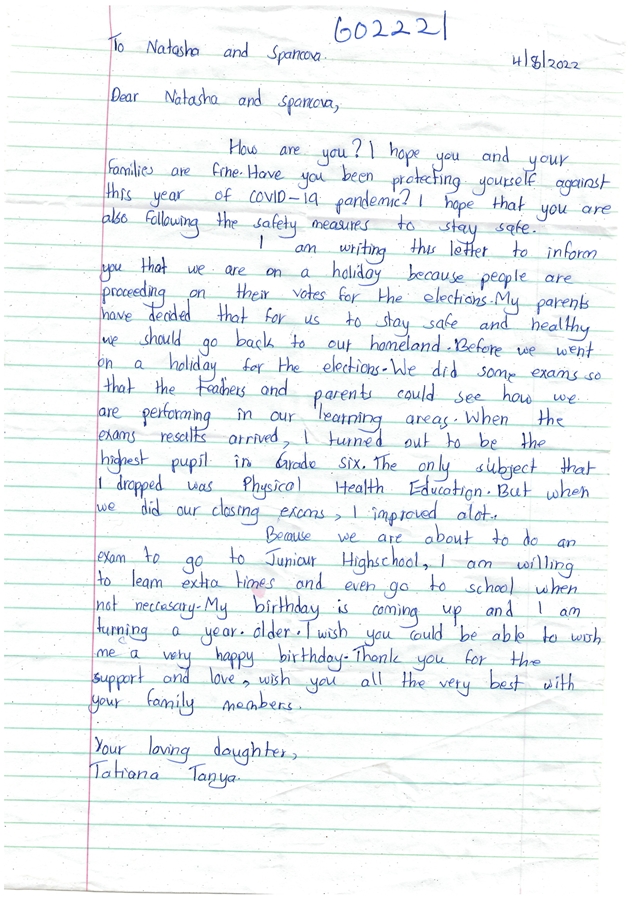 G02221
To Natasha and Spancova.
4/8/2022
Dear Natasha and spancova,
How are you? I hope you and your
families are fine. Have you been protecting yourself against
this year of COVID-19 pandemic? I hope that you are
also following the safety measures to stay safe.
I am writing this letter to inform
you that we are on a holiday because people are
proceeding on their votes for the elections. My parents
have decided that for us to stay safe and healthy
we should go back to our homeland. Before we went
on a holiday for the elections. We did some exams so
that the teachers and parents could see how we
are performing in our learning areas. When the
exams results arrived, I turned out to be the
highest pupil in Grade six. The only subject that
I dropped was Physical Health Education. But when
we did our closing exams, I improved alot..
Because we are about to do an
exam to go to Juniour Highschool, I am willing
to learn extra times and even go to school when
not neccesary. My birthday is coming up and I am
turning a year. older. I wish you could be able to wish
me a very happy birthday. Thank you for the
support and love, wish you all the very best with
your family members.
Your loving daughter,
Tatiana Tanya.